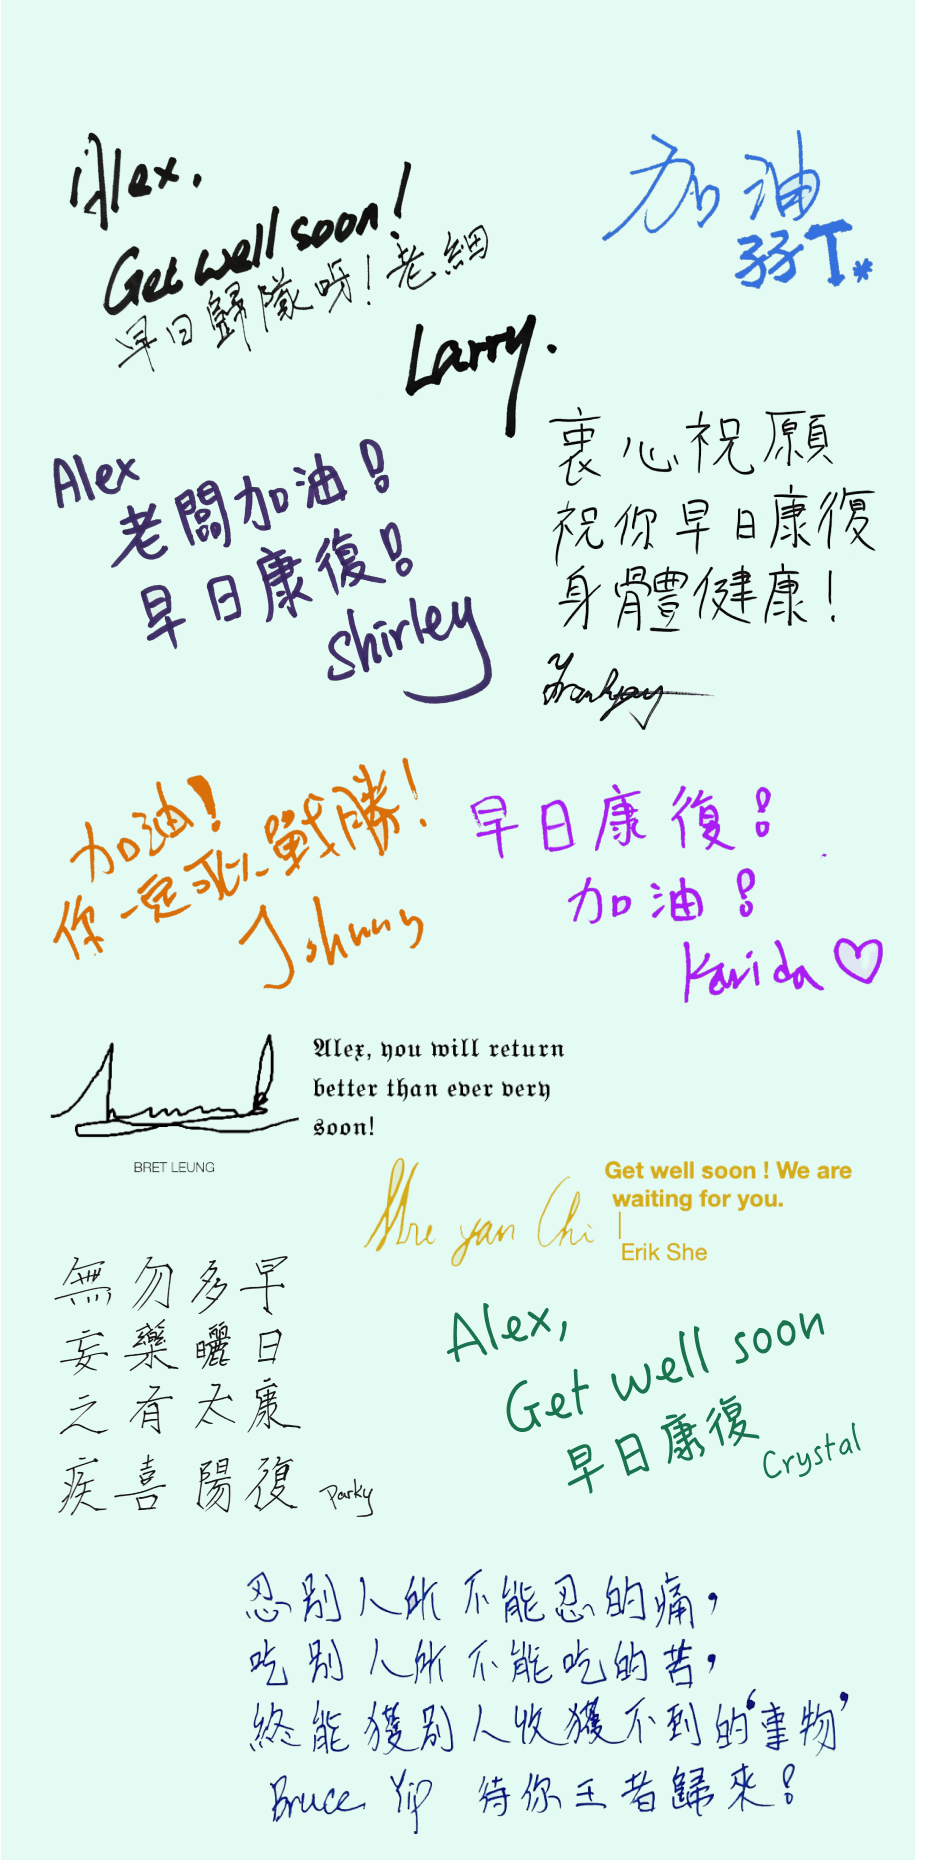 Alex.
Get well soon!
早日歸隊呀！老細
Larry.
加油
孖T*
Alex
老闆加油！
早日康復！
Shirley
衷心祝願
祝你早日康復
身體健康！
加油！
你一定可以戰勝！
Johnny
早日康復！
加油！
Karida
Alex, you will return
better than ever very
soon!
BRET LEUNG
She yan Chi
Get well soon ! We are
waiting for you.
Erik She
早日康復
多曬太陽
勿藥有喜
無妄之疾
Parky
Alex,
Get well soon
早日康復
Crystal
忍別人所不能忍的痛，
吃別人所不能吃的苦，
終能獲別人收獲不到的‘事物’
Bruce Yip 待你王者歸來！